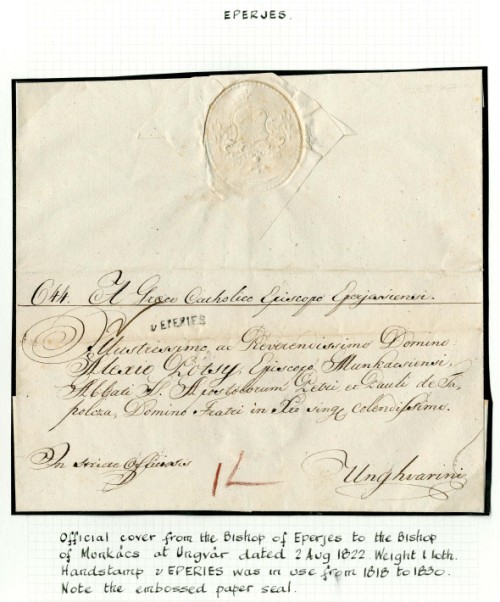 EPERJES.
644. A Græco Catholico Episcopo Eperjesiensi.
v EPERIES
Illustrissimo ac Reverendissimo Domino
Alexio Pótsy, Episcopo Munkacsiensi.
Abbati S. Apostolorum Petri et Pauli de Ta
polcza, Domino Fratri in Xto colendissimo.
In Officiosis
1L
Unghvarini
Official cover from the Bishop of Eperjes to the Bishop
of Monkács at Ungvár dated 2 Aug 1822. Weight 1 loth.
Handstamp v EPERIES was in use from 1818 to 1830.
Note the embossed paper seal.